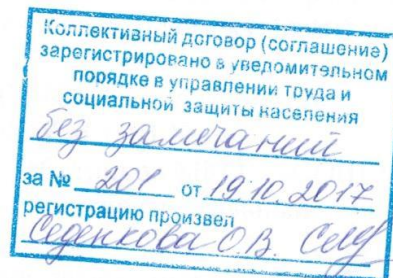 Коллективный договор (соглашение)
зарегистрировано в уведомительном
порядке в управлении труда и
социальной защиты населения
без замечаний
за № 201 от 19.10.2017
регистрацию произвел
Седенкова О.В.